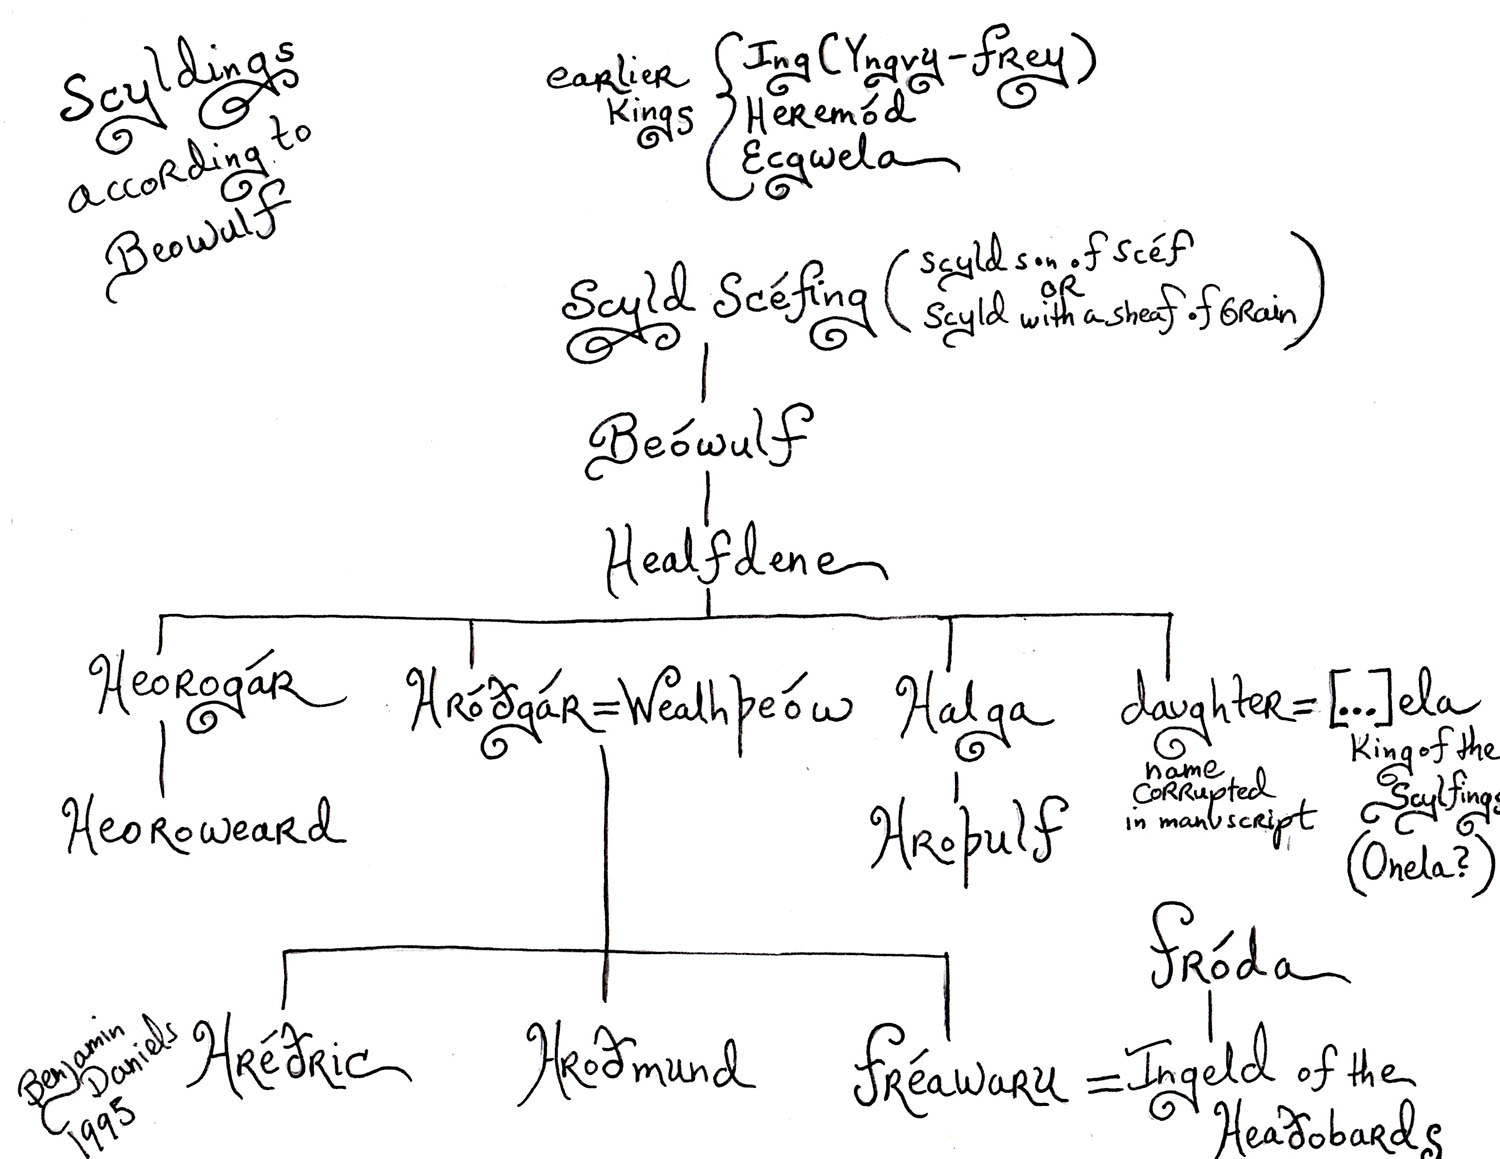 Scyldings
according to
Beowulf
earlier
Kings
Ing (Yngvy-frey)
Heremód
Ecgwela
Scyld Scéfing
(scyld son of Scéf
OR
Scyld with a sheaf of Grain)
Beówulf
Healfdene
Heorogár
Hróðgár = Wealhþeów
Halga
daughter = [...]ela
name
corrupted
in manuscript
King of the
Scylfings
(Onela?)
Heoroweard
Hroþulf
fróda
Hréðric
Hroðmund
fréawaru = Ingeld of the
Heaðobards
Benjamin
Daniels
1995